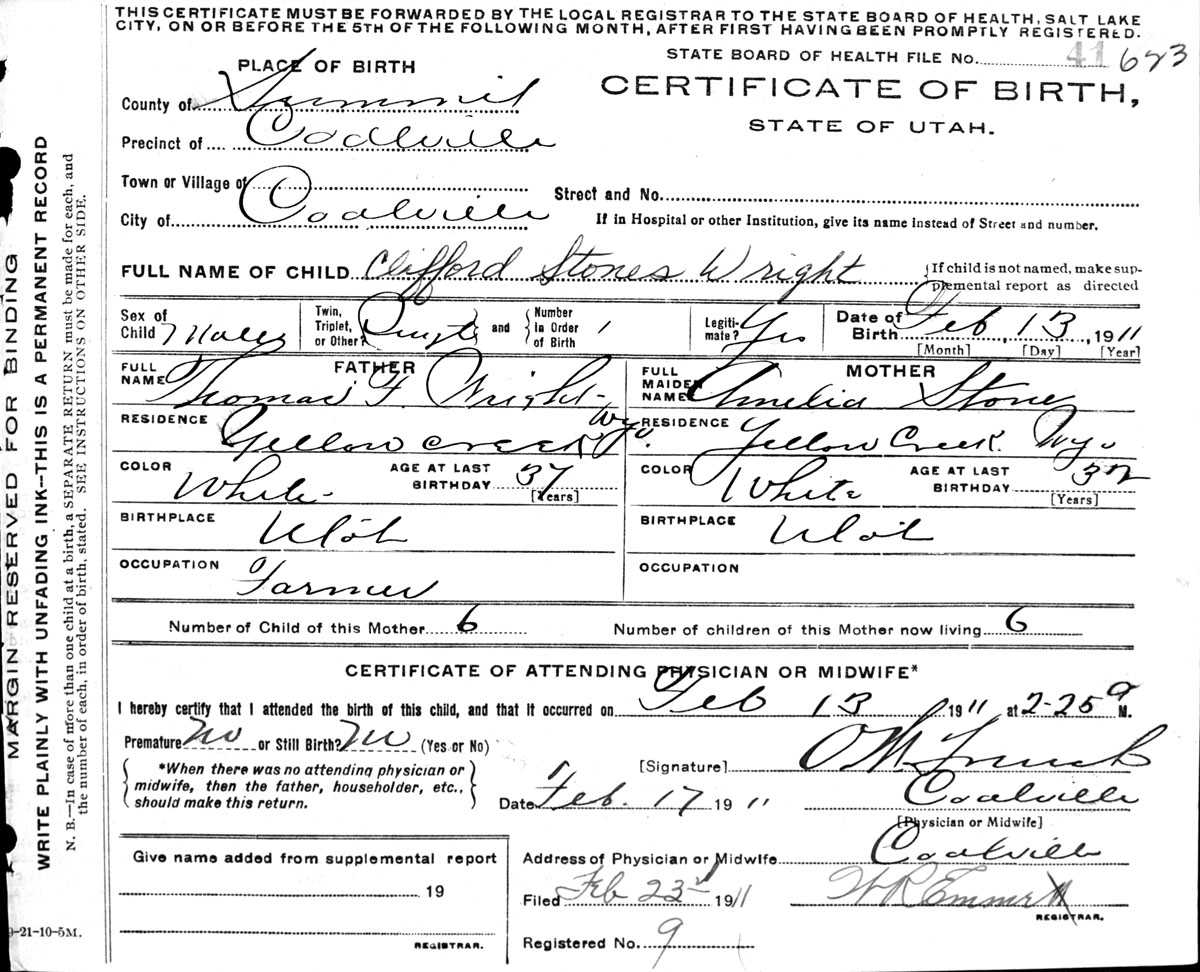 THIS CERTIFICATE MUST BE FORWARDED BY THE LOCAL REGISTRAR TO THE STATE BOARD OF HEALTH, SALT LAKE
CITY, ON OR BEFORE THE 5TH OF THE FOLLOWING MONTH, AFTER FIRST HAVING BEEN PROMPTLY REGISTERED.
STATE BOARD OF HEALTH FILE No. 41 623
PLACE OF BIRTH
CERTIFICATE OF BIRTH,
STATE OF UTAH.
County of Summit
Precinct of Coalville
Town or Village of
Street and No.
City of Coalville
If in Hospital or other Institution, give its name instead of Street and number.
FULL NAME OF CHILD Clifford Stones Wright
If child is not named, make sup-
plemental report as directed
Sex of Child Male
Twin, Triplet, or Other? and Number in Order of Birth 1
Legiti-mate? Yes
Date of Birth Feb, 13, 1911
[Month] [Day] [Year]
FATHER
FULL NAME Thomas F. Wright
RESIDENCE Yellow Creek Wyo.
COLOR White
AGE AT LAST BIRTHDAY 37 [Years]
BIRTHPLACE Utah
OCCUPATION Farmer
MOTHER
FULL MAIDEN NAME Amelia Stones
RESIDENCE Yellow Creek. Wyo
COLOR White
AGE AT LAST BIRTHDAY 32 [Years]
BIRTHPLACE Utah
OCCUPATION
Number of Child of this Mother 6
Number of children of this Mother now living 6
CERTIFICATE OF ATTENDING PHYSICIAN OR MIDWIFE*
I hereby certify that I attended the birth of this child, and that it occurred on Feb 13 1911 at 2-25 a M.
Premature No or Still Birth? No (Yes or No)
*When there was no attending physician or
midwife, then the father, householder, etc.,
should make this return.
[Signature]
Date Feb. 17 1911
Coalville
[Physician or Midwife]
Give name added from supplemental report
19
REGISTRAR.
Address of Physician or Midwife Coalville
Filed Feb 23rd 1911
W R Emmett
REGISTRAR.
Registered No. 9
MARGIN RESERVED FOR BINDING
WRITE PLAINLY WITH UNFADING INK—THIS IS A PERMANENT RECORD
N. B.—In case of more than one child at a birth, a SEPARATE RETURN must be made for each, and
the number of each, in order of birth, stated. SEE INSTRUCTIONS ON OTHER SIDE.
-21-10-5M.